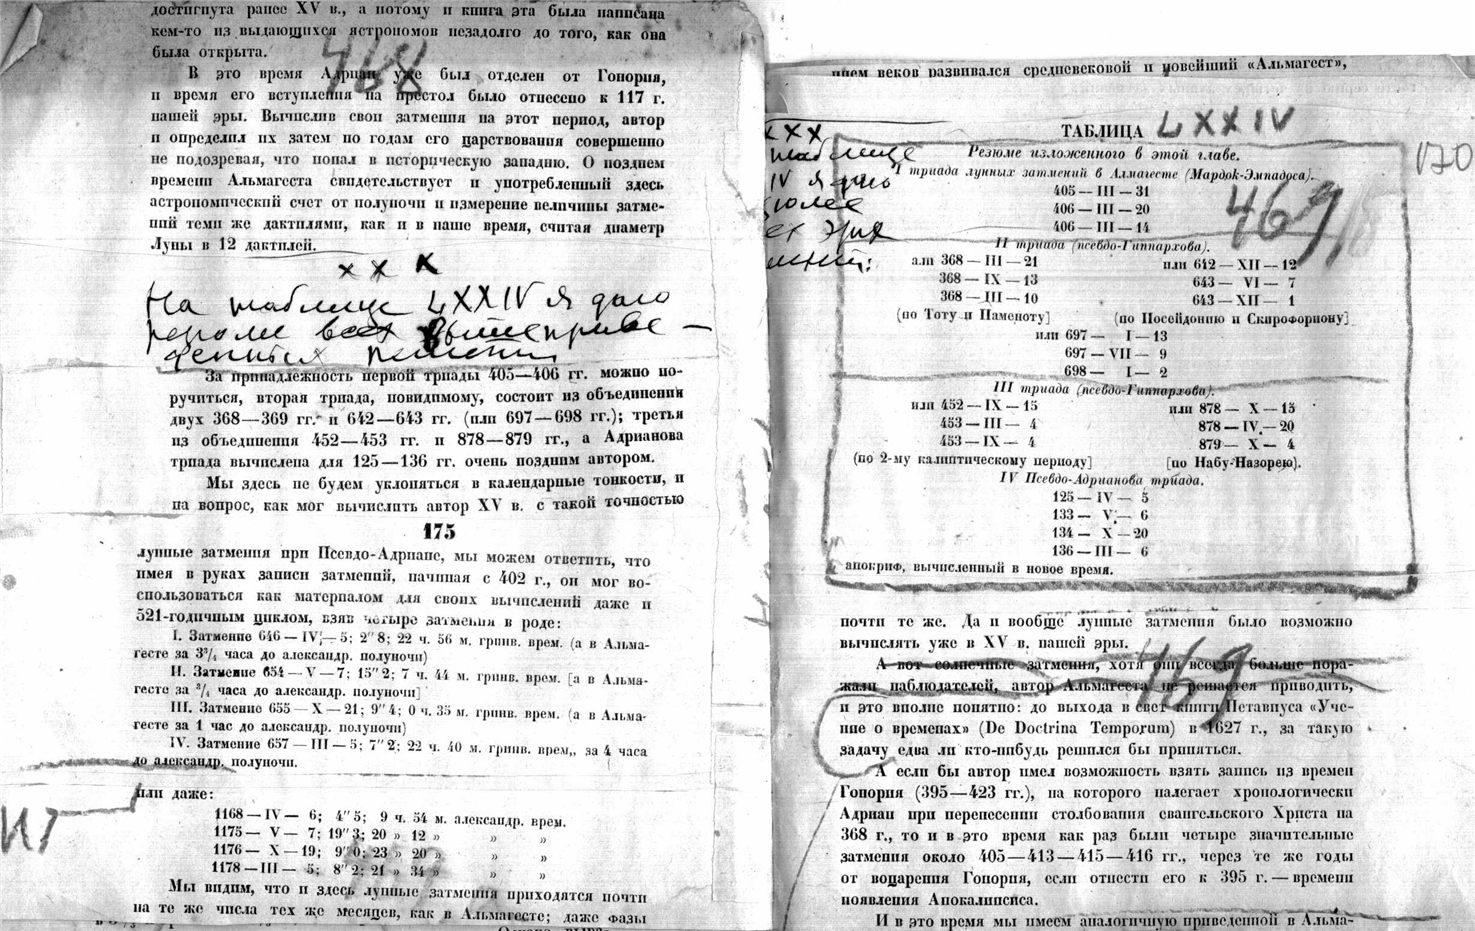 достигнута ранее XV в., а потому и книга эта была написана
кем-то из выдающихся астрономов незадолго до того, как она
была открыта.
468
В это время Адриан уже был отделен от Гонория,
и время его вступления на престол было отнесено к 117 г.
нашей эры. Вычислив свои затмения на этот период, автор
и определил их затем по годам его царствования совершенно
не подозревая, что попал в историческую западню. О позднем
времени Альмагеста свидетельствует и употребленный здесь
астрономический счет от полуночи и измерение величины затме-
ний теми же дактилями, как и в наше время, считая диаметр
Луны в 12 дактилей.
х х х
На таблице LXXIV я даю
резюме всех вышеприве-
денных
За принадлежность первой триады 405—406 гг. можно по-
ручиться, вторая триада, повидимому, состоит из объединений
двух 368—369 гг. и 642—643 гг. (или 697—698 гг.); третья
из объединения 452—453 гг. и 878—879 гг., а Адрианова
триада вычислена для 125—136 гг. очень поздним автором.
Мы здесь не будем уклоняться в календарные тонкости, и
на вопрос, как мог вычислить автор XV в. с такой точностью
175
лунные затмения при Псевдо-Адриане, мы можем ответить, что
имея в руках записи затмений, начиная с 402 г., он мог во-
спользоваться как материалом для своих вычислений даже и
521-годичным циклом, взяв четыре затмения в роде:
I. Затмение 646—IV—5; 2"8; 22 ч. 56 м. гринв. врем. (а в Альма-
гесте за 3³/₄ часа до александр. полуночи)
II. Затмение 654—V—7; 15"2; 7 ч. 44 м. гринв. врем. [а в Альма-
гесте за ³/₄ часа до александр. полуночи]
III. Затмение 655—X—21; 9"4; 0 ч. 35 м. гринв. врем. (а в Альма-
гесте за 1 час до александр. полуночи)
IV. Затмение 657—III—5; 7"2; 22 ч. 40 м. гринв. врем,, за 4 часа
до александр. полуночи.
или даже:
1168—IV— 6; 4"5; 9 ч. 54 м. александр. врем.
1175— V— 7; 19"3; 20 » 12 » » »
1176— X—19; 9"0; 23 » 20 » » »
1178—III— 5; 8"2; 21 » 34 » » »
Мы видим, что и здесь лунные затмения приходятся почти
на те же числа тех же месяцев, как в Альмагесте; даже фазы
нием веков развивался средневековой и новейший «Альмагест»,
х х х
таблице
IV я даю
ТАБЛИЦА LXXIV
170
Резюме изложенного в этой главе.
I триада лунных затмений в Алмагесте (Мардок-Эмпадоса).
405—III—31
406—III—20
406—III—14
469
II триада (псевдо-Гиппархова).
али 368—III—21 или 642—XII—12
368—IX—13 643— VI— 7
368—III—10 643—XII— 1
(по Тоту и Паменоту] (по Посейдонию и Скирофориону]
или 697— I—13
697—VII— 9
698— I— 2
III триада (псевдо-Гиппархова).
или 452—IX—15 или 878— X—15
453—III— 4 878—IV.—20
453—IX— 4 879— X— 4
(по 2-му калиптическому периоду] [по Набу-Назорею).
IV Псевдо-Адрианова триада.
125—IV— 5
133— V— 6
134— X—20
136—III— 6
апокриф, вычисленный в новое время.
почти те же. Да и вообще лунные затмения было возможно
вычислять уже в XV в. нашей эры.
469
А вот солнечные затмения, хотя они всегда больше пора-
жали наблюдателей, автор Альмагеста не решается приводить,
и это вполне понятно: до выхода в свет книги Петавиуса «Уче-
ние о временах» (De Doctrina Temporum) в 1627 г., за такую
задачу едва ли кто-нибудь решился бы приняться.
А если бы автор имел возможность взять запись из времен
Гонория (395—423 гг.), на которого налегает хронологически
Адриан при перенесении столбования евангельского Христа на
368 г., то и в это время как раз были четыре значительные
затмения около 405—413—415—416 гг., через те же годы
от воцарения Гонория, если отнести его к 395 г. — времени
появления Апокалипсиса.
И в это время мы имеем аналогичную приведенной в Альма-